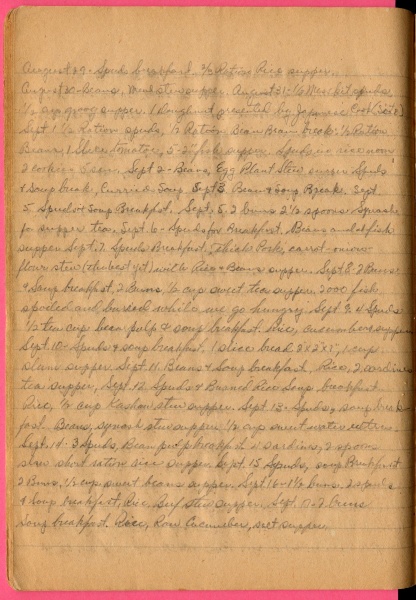 August 29 - Spuds breakfast. 1/2 Ration Rice supper.
August 30 - Beans, stew supper. August 31 - 1/2 Mess kit spuds,
1/2 cup gravy supper. 1 Doughnut presented by Japanese Cook
Sept 1 1/2 Ration spuds, 1/2 Ration Bean Bean break. 1/2 Ration
Beans, 1 slice tomatoe, 5 - 2" fish supper. Spuds, no rice noon
2 cookies. Sept 2 - Beans, Egg Plant Stew supper Spuds
& Soup break, Curried Soup. Sept 3 Beans & Soup Break. Sept.
5, Spuds & Soup Breakfast. Sept. 5, 2 buns 2 1/2 spoons Squash
supper tea. Sept. 6 - Spuds for Breakfast. Beans and fish
supper. Sept. 7. Spuds Breakfast. Pork, carrot - onion
flour stew (the best yet) with Rice & Beans supper. Sept. 8 - 2 Buns
& Soup breakfast, 2 Buns, 1/2 cup sweet tea supper. 2000 fish
spoiled and buried while we go hungry. Sept 9, 4 Spuds
1/2 tea cup bean pulp & soup breakfast. Rice, cucumbers supper
Sept. 10 - Spuds & soup breakfast. 1 slice bread 2"x2"x1", 1 cup
supper. Sept. 11. Beans & Soup breakfast. Rice, 2 sardines
tea supper. Sept. 12. Spuds & Burned Rice Soup breakfast
Rice, 1/2 cup stew supper. Sept. 13 - Spuds, soup break-
fast. Beans, squash stew supper. 1/2 cup sweet water
Sept. 14 - 3 Spuds, Bean pulp breakfast. 2 Sardines, 2 spoons
stew short ration rice supper. Sept. 15 Spuds, soup Breakfast
2 Buns, 1/2 cup sweet beans supper. Sept. 16 - 1 1/2 buns, 2 spuds
& Soup breakfast, Rice, Beef stew supper. Sept. 17 - 2 buns
Soup breakfast. Rice, Raw Cucumber, supper